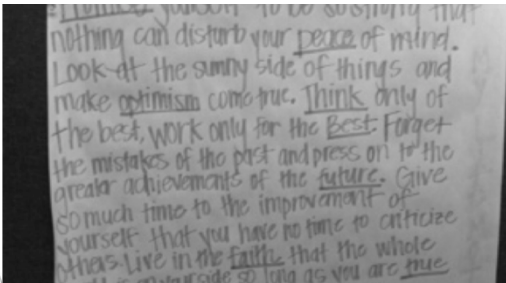 Promise yourself to be so strong that
nothing can disturb your peace of mind.
Look at the sunny side of things and
make optimism come true. Think only of
the best, work only for the Best. Forget
the mistakes of the past and press on to the
greater achievements of the future. Give
so much time to the improvement of
yourself that you have no time to criticize
others. Live in the faith that the whole
is on your side so long as you are true